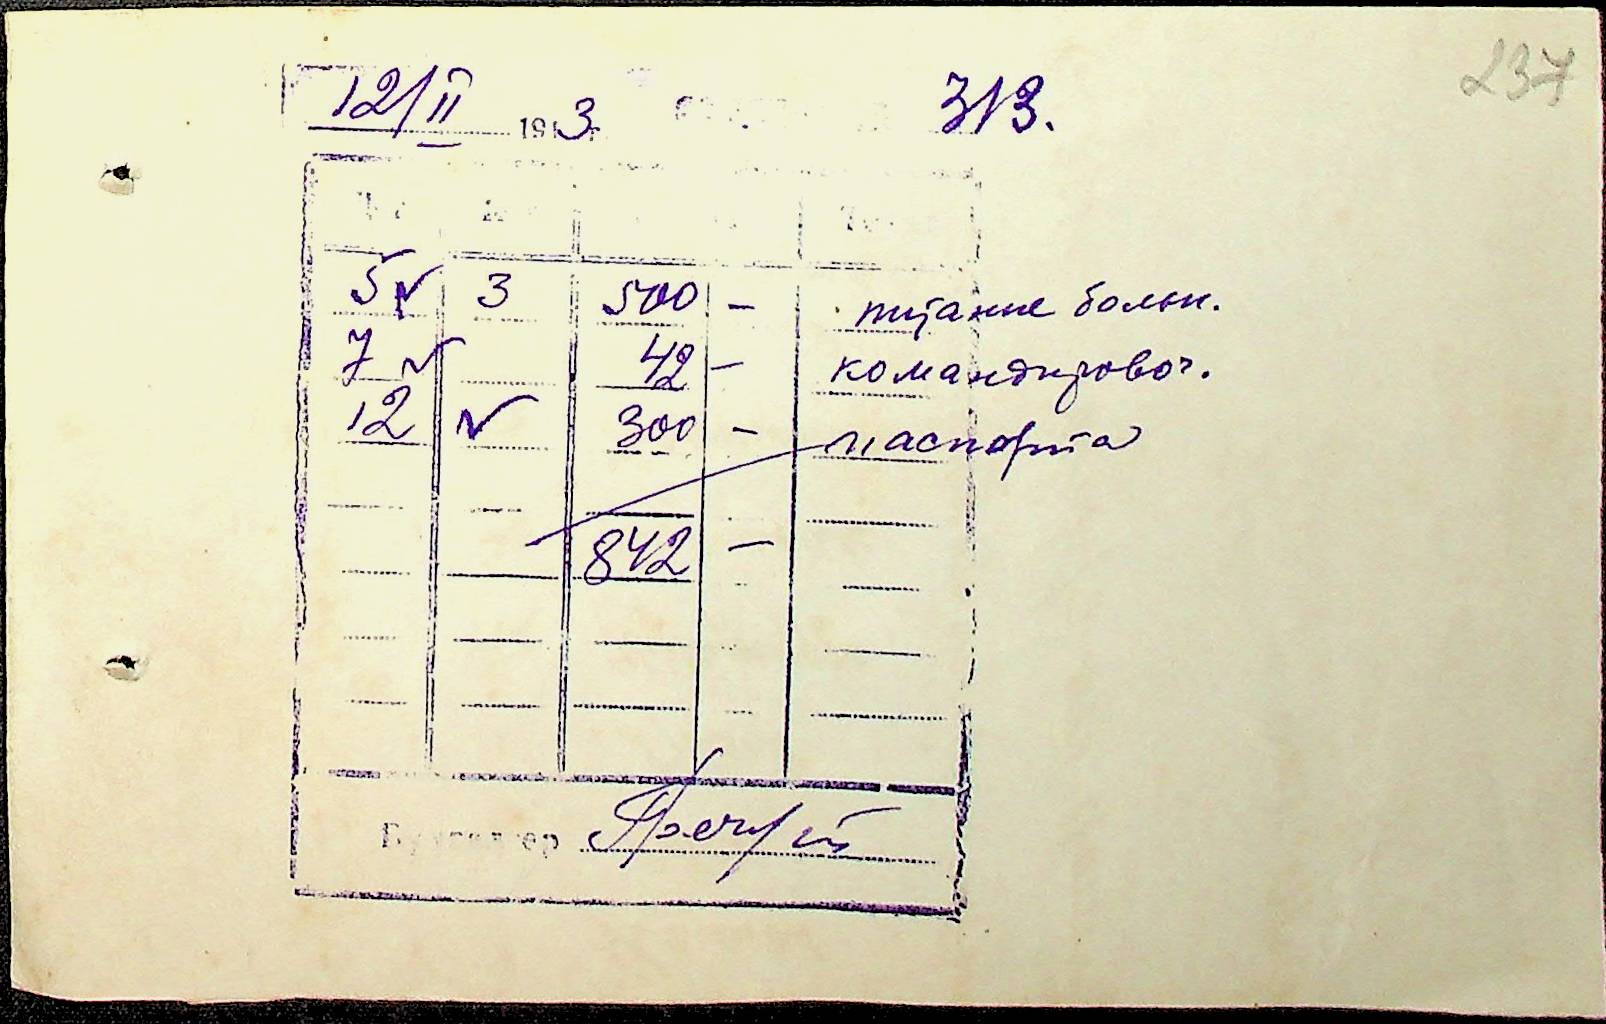 237
12/II 1913 г. 313.
5 3 500 - питание больн.
7 42 - командировоч.
12 300 - паспорта
842 -
Бухгалтер